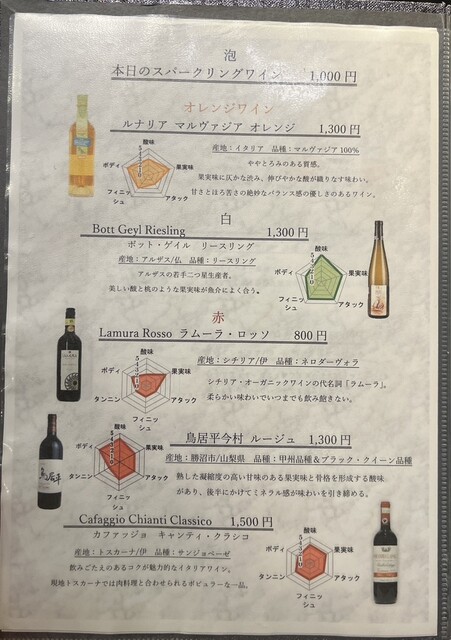 泡
本日のスパークリングワイン 1,000 円
オレンジワイン
ルナリア マルヴァジア オレンジ 1,300 円
産地：イタリア 品種：マルヴァジア 100%
ややとろみのある質感。
果実味に仄かな渋み、伸びやかな酸が織りなす味わい。
甘さとほろ苦さの絶妙なバランス感の優しさのあるワイン。
酸味
果実味
アタック
フィニッシュ
ボディ
白
Bott Geyl Riesling 1,300 円
ボット・ゲイル リースリング
産地：アルザス/仏 品種：リースリング
アルザスの若手二つ星生産者。
美しい酸と桃のような果実味が魚介によく合う。
酸味
5 4 3 2 1 0
果実味
アタック
フィニッシュ
ボディ
赤
Lamura Rosso ラムーラ・ロッソ 800 円
産地：シチリア/伊 品種：ネロダーヴォラ
シチリア・オーガニックワインの代名詞「ラムーラ」。
柔らかい味わいでいつまでも飲み飽きない。
酸味
5 4 3 2 1 0
果実味
アタック
フィニッシュ
タンニン
ボディ
鳥居平今村 ルージュ 1,300 円
産地：勝沼市/山梨県 品種：甲州品種＆ブラック・クイーン品種
熟した凝縮度の高い甘味のある果実味と骨格を形成する酸味
があり、後半にかけてミネラル感が味わいを引き締める。
酸味
果実味
アタック
フィニッシュ
タンニン
ボディ
鳥居平
Cafaggio Chianti Classico 1,500 円
カファッジョ キャンティ・クラシコ
産地：トスカーナ/伊 品種：サンジョベーゼ
飲みごたえのあるコクが魅力的なイタリアワイン。
現地トスカーナでは肉料理と合わせられるポピュラーな一品。
酸味
5 4 3 2 1 0
果実味
アタック
フィニッシュ
タンニン
ボディ